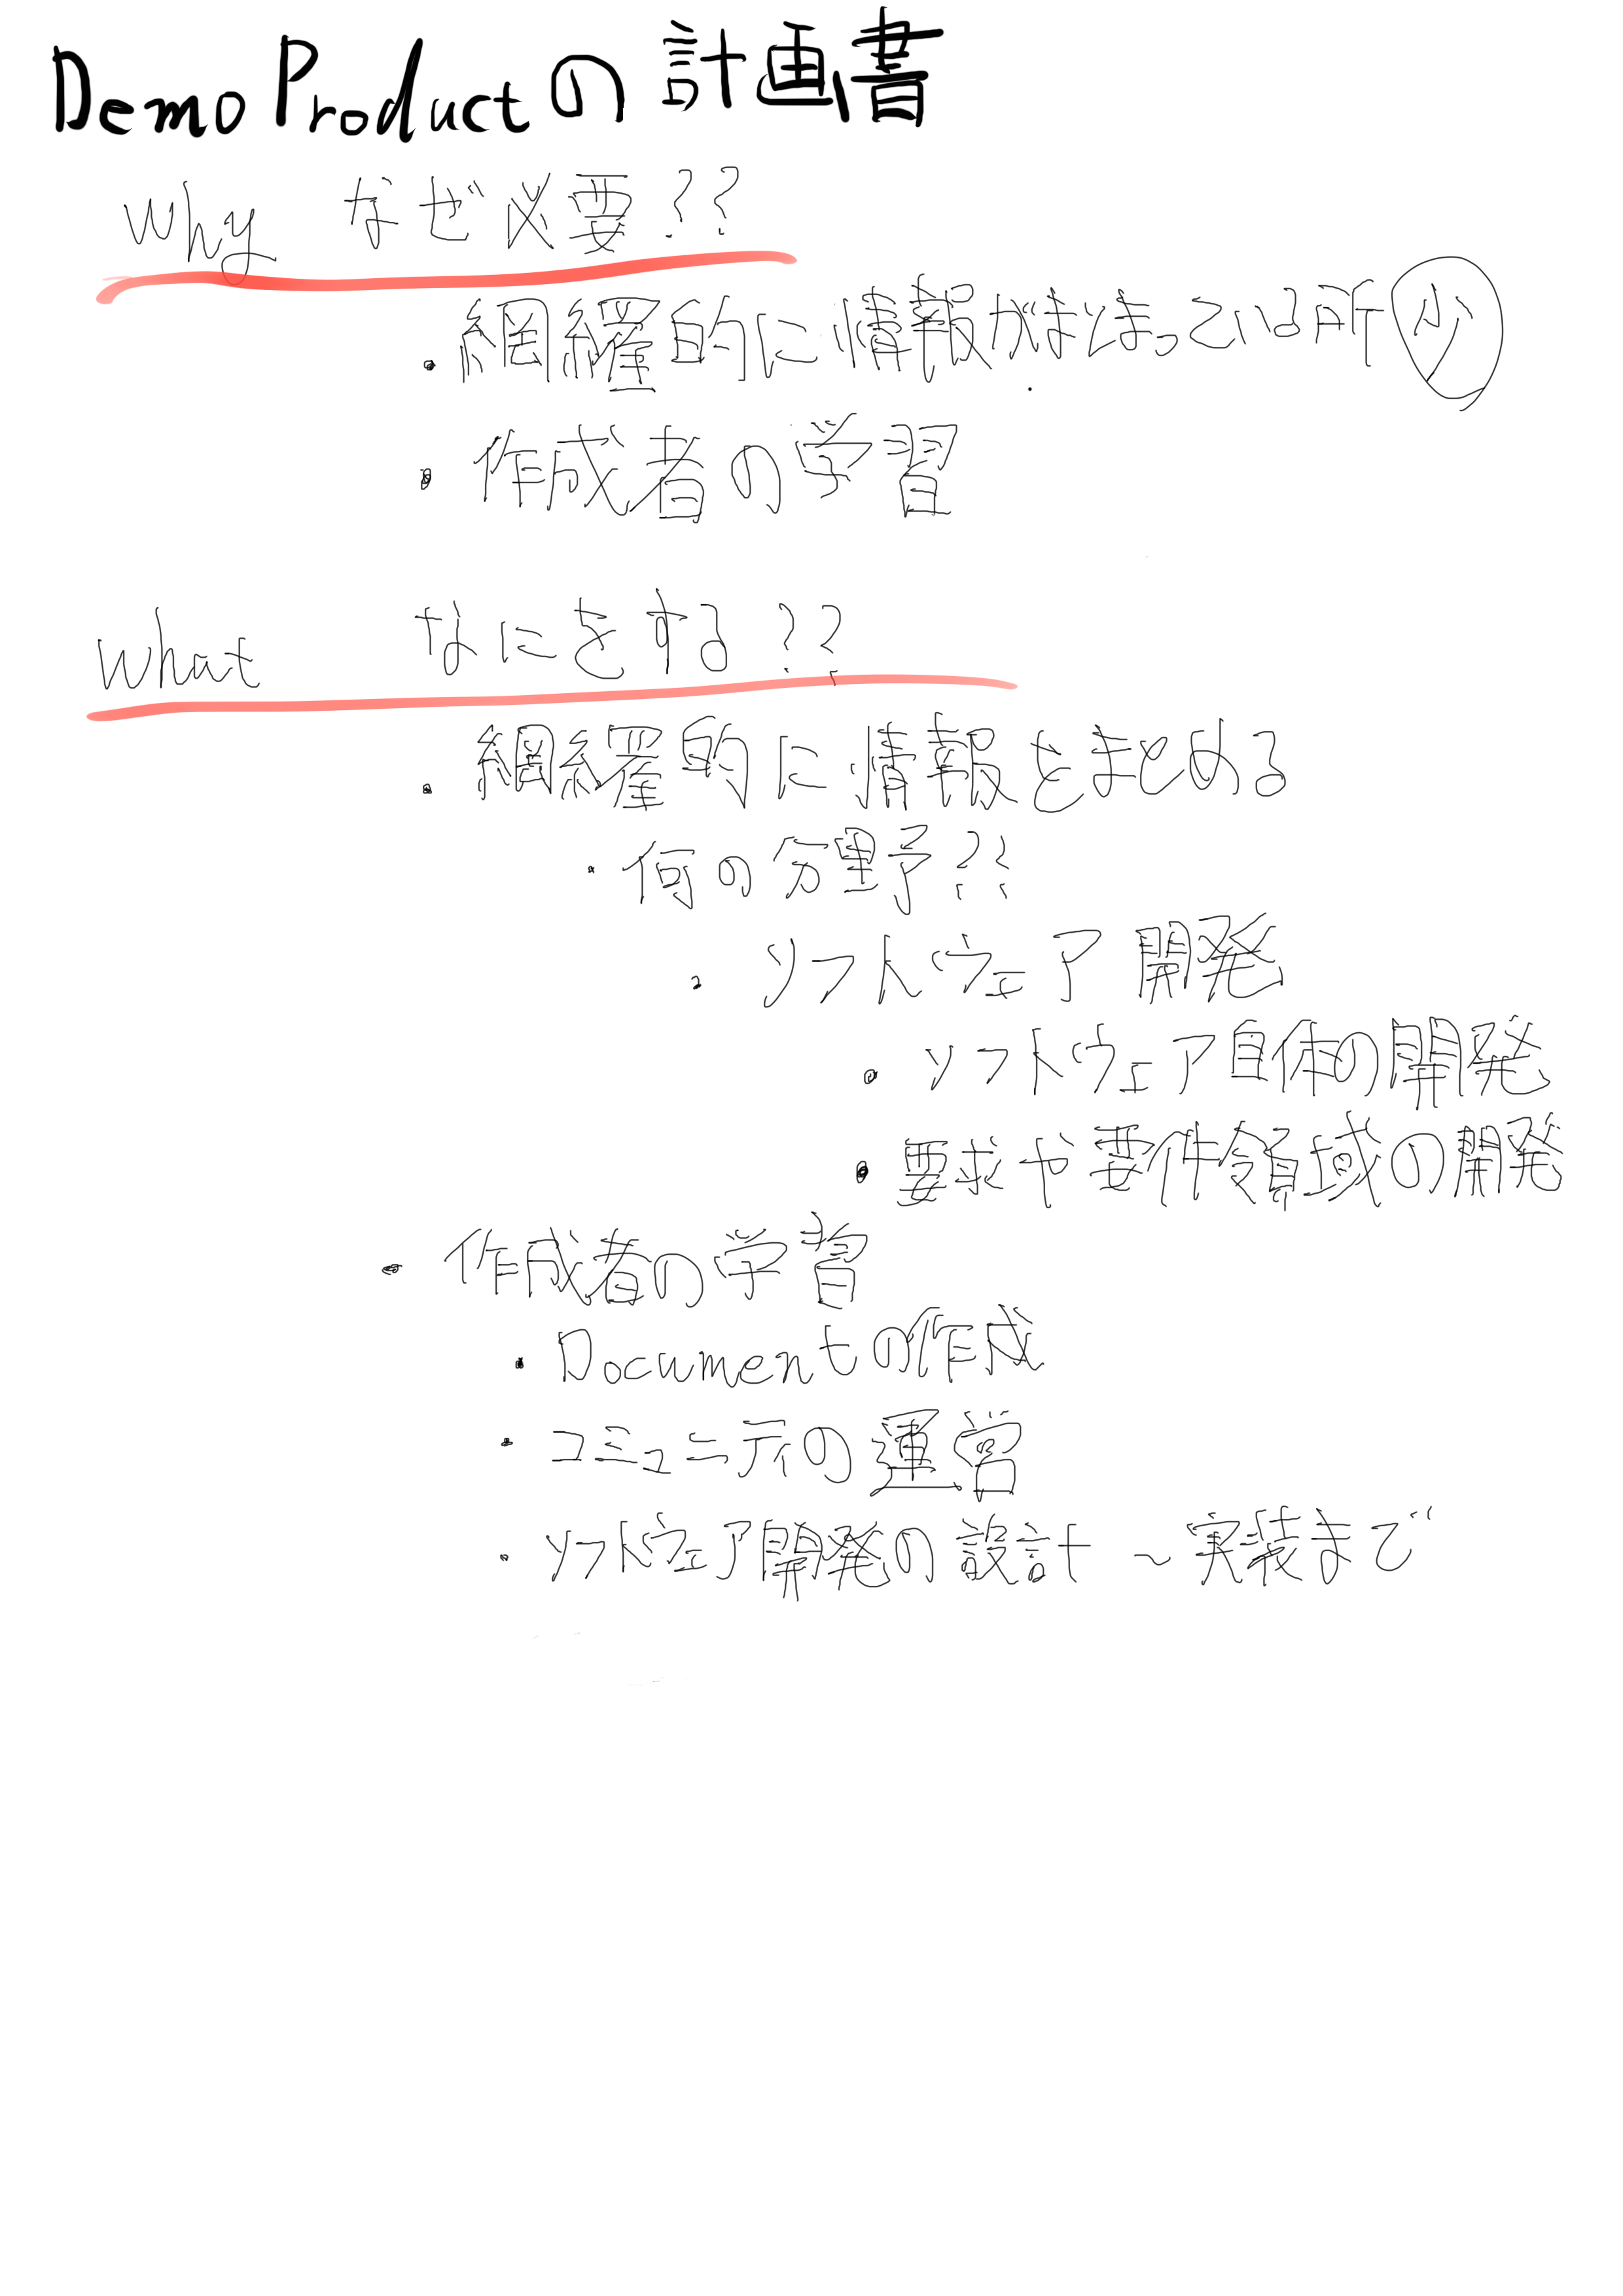 Demo Productの計画書
Why なぜ必要??
・網羅的に情報がまとまっている所 少
・作成者の学習
What なにをする??
・網羅的に情報をまとめる
・何の分野??
・ソフトウェア開発
・ソフトウェア自体の開発
・要求や要件領域の開発
・作成者の学習
・Documentの作成
・コミュニティの運営
・ソフトウェア開発の設計 ~実装まで